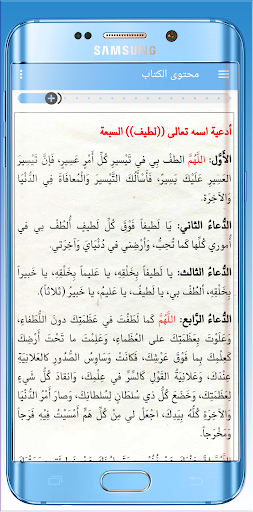 SAMSUNG
محتوى الكتاب
أدعية اسمه تعالى ((لطيف)) السبعة
الأَوَّل: اللَّهُمَّ الطفْ بِي فِي تَيْسيرِ كُلِّ أَمْرٍ عَسِيرٍ، فَإِنَّ تَيْسِيرَ
العَسِيرِ عَلَيْكَ يَسِيرٌ، فَأَسْأَلُكَ التَّيْسِيرَ وَالْمُعَافَاةَ فِي الدُّنْيَا
وَالآخِرَةِ.
الدُّعاءُ الثاني: يَا لَطِيفاً فَوْقَ كُلِّ لَطِيفٍ أُلْطُفْ بِي فِي
أُمُورِي كُلِّهَا كَمَا تُحِبُّ، وَأَرْضِنِي فِي دُنْيَايَ وَآخِرَتِي.
الدُّعاءُ الثالث: يَا لَطِيفاً بِخَلْقِهِ، يا عَلِيماً بِخَلْقِهِ، يا خَبِيراً
بِخَلْقِهِ، أُلْطُفْ بِي، يا لَطِيفُ، يا عَلِيمُ، يا خَبِيرُ (ثلاثاً).
الدُّعاءُ الرَّابِع: اللَّهُمَّ كَمَا لَطَفْتَ فِي عَظَمَتِكَ دُونَ اللُّطَفَاءِ،
وَعَلَوْتَ بِعَظَمَتِكَ عَلَى العُظَمَاءِ، وَعَلِمْتَ مَا تَحْتَ أَرْضِكَ
كَعِلْمِكَ بِمَا فَوْقَ عَرْشِكَ، فَكَانَتْ وَسَاوِسُ الصُّدُورِ كَالعَلَانِيَةِ
عِنْدَكَ، وَعَلَانِيَةُ القَوْلِ كَالسِّرِّ فِي عِلْمِكَ، وَانقَادَ كُلُّ شَيْءٍ
لِعَظَمَتِكَ، وَخَضَعَ كُلُّ ذِي سُلْطَانٍ لِسُلْطَانِكَ، وَصَارَ أَمْرُ الدُّنْيَا
وَالآخِرَةِ كُلُّهُ بِيَدِكَ، اجْعَل لِي مِنْ كُلِّ هَمٍّ أَمْسَيْتُ فِيهِ فَرَجاً
وَمَخْرَجاً.